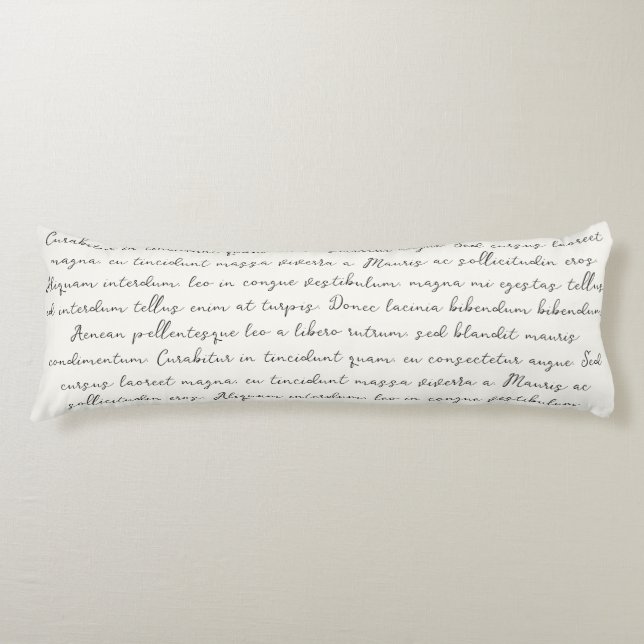 Curabitur in tincidunt quam, augue. Sed cursus laoreet
magna, eu tincidunt massa viverra a. Mauris ac sollicitudin eros.
Aliquam interdum, leo in congue vestibulum, magna mi egestas tellus,
interdum tellus enim at turpis. Donec lacinia bibendum bibendum.
Aenean pellentesque leo a libero rutrum, sed blandit mauris
condimentum. Curabitur in tincidunt quam, eu consectetur augue. Sed
cursus laoreet magna, eu tincidunt massa viverra a. Mauris ac
sollicitudin eros. Aliquam interdum, leo in congue vestibulum,